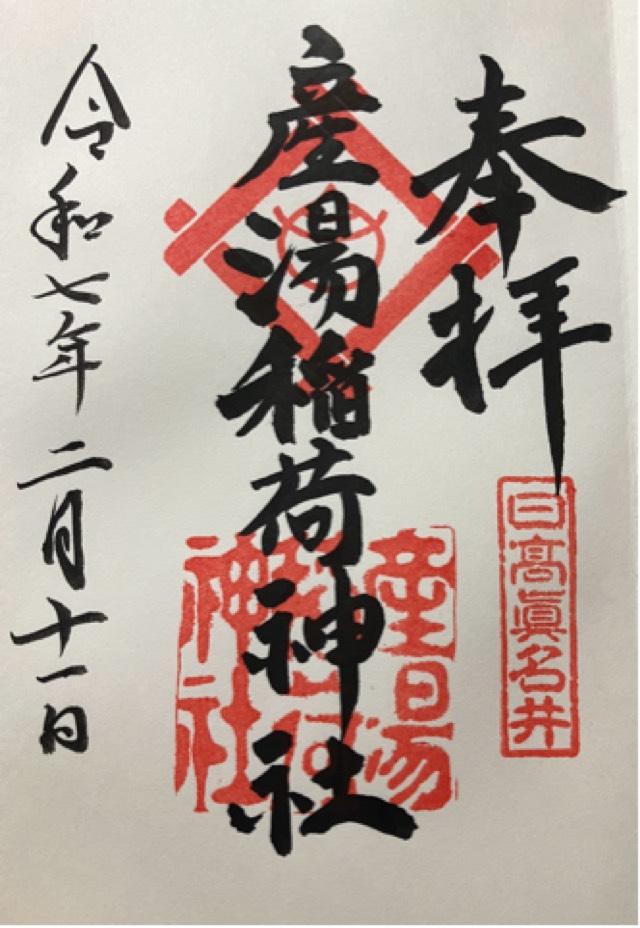 奉拝
日高眞名井
産湯稲荷神社
産湯稲荷神社
令和七年二月十一日